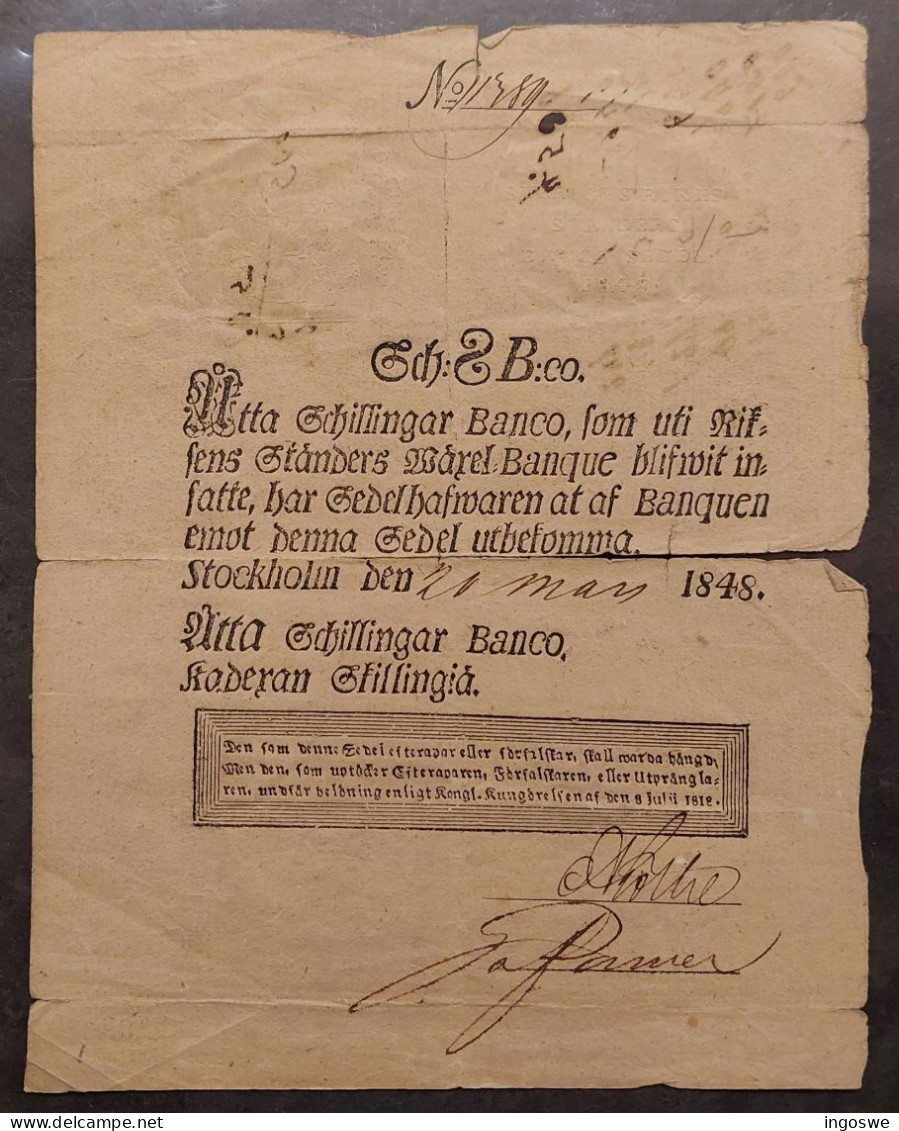 No 1389
Sch: 8 B:co.
Åtta Schillingar Banco, som uti Rik-
sens Ständers Wäxel-Banque blifwit in-
satte, har Sedelhafwaren at af Banquen
emot denna Sedel utbekomma.
Stockholm den 20 Mars 1848.
Åtta Schillingar Banco,
Kadexan Skillingiä.
Den som denne Sedel efterapar eller förfalskar, skall warda hängd;
Men den, som uptäcker Efteraparen, Förfalskaren, eller Utprångla-
ren, undfår belöning enligt Kongl. Kungörelsen af den 8 Julii 1818.
ingoswe